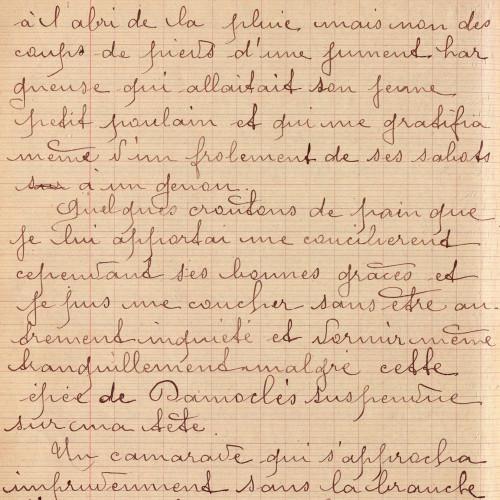 à l'abri de la pluie mais non des
coups de pieds d'une jument har
gneuse qui allaitait son jeune
petit poulain et qui me gratifia
même d'un frolement de ses sabots
sur à un genou.
Quelques croutons de pain que
je lui apportai me concilierent
cependant ses bonnes grâces et
je pus me coucher sans être au-
trement inquiété et dormir même
tranquillement malgré cette
épée de Damoclès suspendue
sur ma tête.
Un camarade qui s'approcha
imprudemment sans la branche